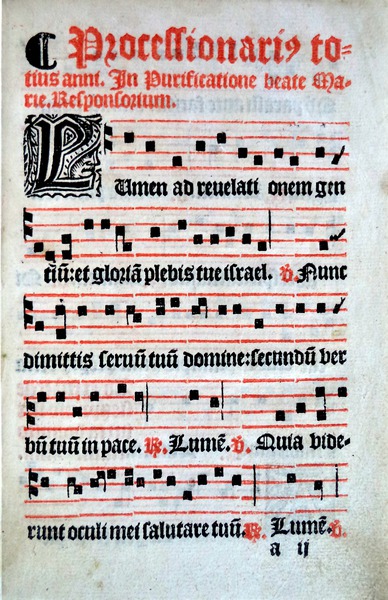 ¶ Processionariꝰ to⸗
tius anni. In Purificatione beate Ma⸗
rie. Responsorium.
LUmen ad reuelati onem gen
tiū: et gloriā plebis tue israel. ℣. Nunc
dimittis seruū tuū domine: secundū ver
bū tuū in pace. ℟. Lumē. ℣. Quia vide⸗
runt oculi mei salutare tuū. ℟. Lumē. ℣.
a ij